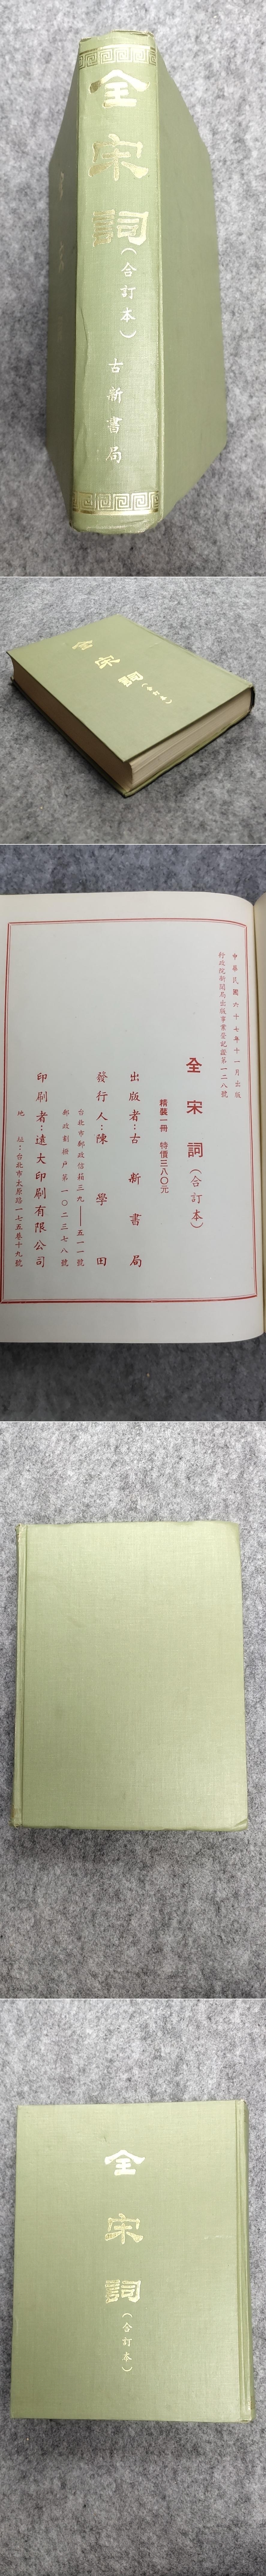 全宋詞(合訂本)
古新書局
全宋詞(合訂本)
中華民國六十七年十一月出版
行政院新聞局出版事業登記證第一二八號
全宋詞(合訂本)
精裝一冊 特價三八〇元
出版者:古新書局
發行人:陳學田
台北市郵政信箱三九——五一一號
郵政劃撥戶第一〇二三七八號
印刷者:遠大印刷有限公司
地址:台北市太原路一七五巷十九號
全宋詞
(合訂本)